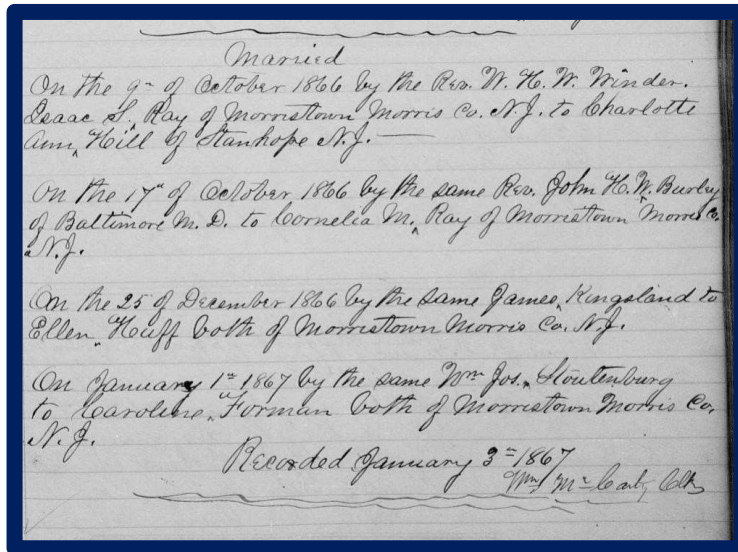 Married
On the 9" of October 1866 by the Rev. W. H. W. Winder.
Isaac S. Ray of Morristown Morris Co. N.J. to Charlotte
Ann Hill of Stanhope N.J. —
On the 17" of October 1866 by the same Rev. John H. W. Burley
of Baltimore M. D. to Cornelia M. Ray of Morristown Morris Co.
N.J.
On the 25 of December 1866 by the same James Kingsland to
Ellen Huff both of Morristown Morris Co. N.J.
On January 1st 1867 by the same Wm Jos. Stoutenburg
to Caroline Forman both of Morristown Morris Co.
N.J.
Recorded January 3" 1867
Wm Mc Carty Clk